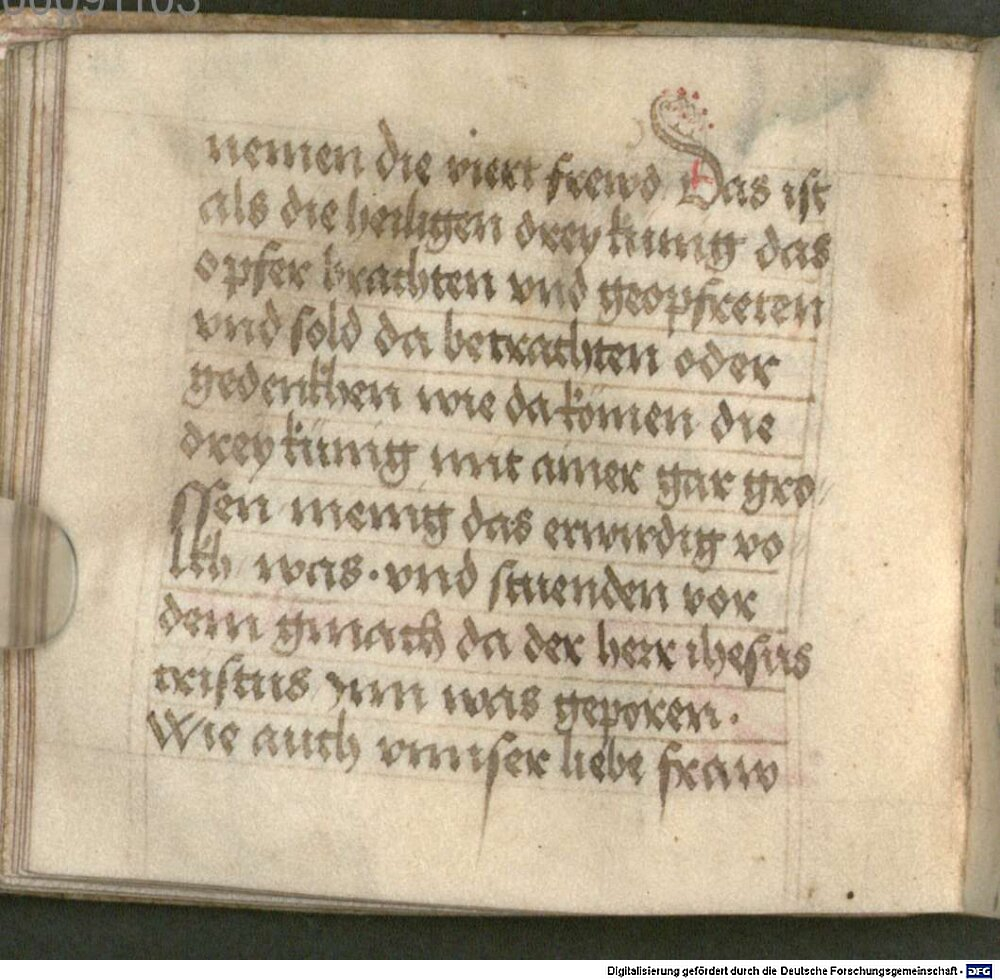 00091103
nemen die viert frewd Das ist
als die heiligen drey künig das
opfer brachten vnd geopfreten
vnd sold da betrachten oder
gedenkhen wie da komen die
drey künig mit ainer gar gro
ssen menig das erwirdig vo
lkh was · vnd stuenden vor
dem gmach da der herr ihesus
cristus ynn was geporen ·
Wie auch vnnser liebe fraw
Digitalisierung gefördert durch die Deutsche Forschungsgemeinschaft - DFG